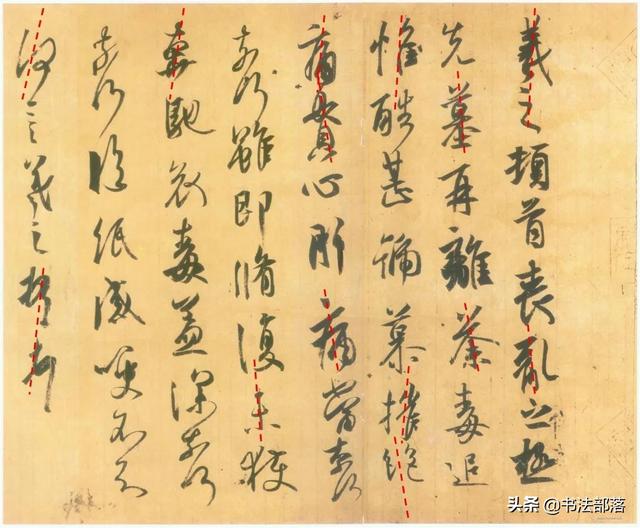 羲之頓首喪亂之極
先墓再離荼毒追
惟酷甚號慕摧絕
痛貫心肝痛當奈何
奈何雖即脩復未獲
奔馳哀毒益深奈何
奈何臨紙感哽不知
何言羲之頓首頓首
头条 @书法部落